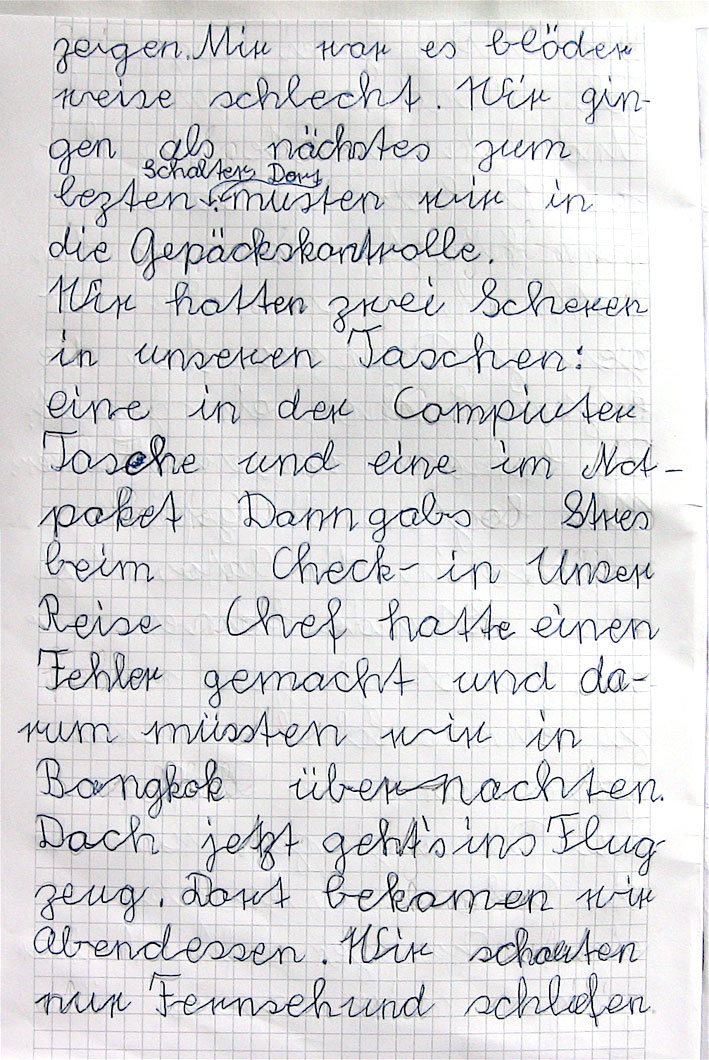 zeigen. Mir war es blöder
weise schlecht. Wir gin-
gen als nächstes zum
Schalter. Dort
lezten musten wir in
die Gepäckskontrolle.
Wir hatten zwei Scheren
in unseren Taschen:
eine in der Compiuter
Tasche und eine im Not-
paket Dann gabs Stres
beim Check-in Unser
Reise Chef hatte einen
Fehler gemacht und da-
rum müssten wir in
Bangkok übernachten.
Doch jetzt geht's ins Flug-
zeug. Dort bekamen wir
Abendessen. Wir schauten
nur Fernseh und schlafen